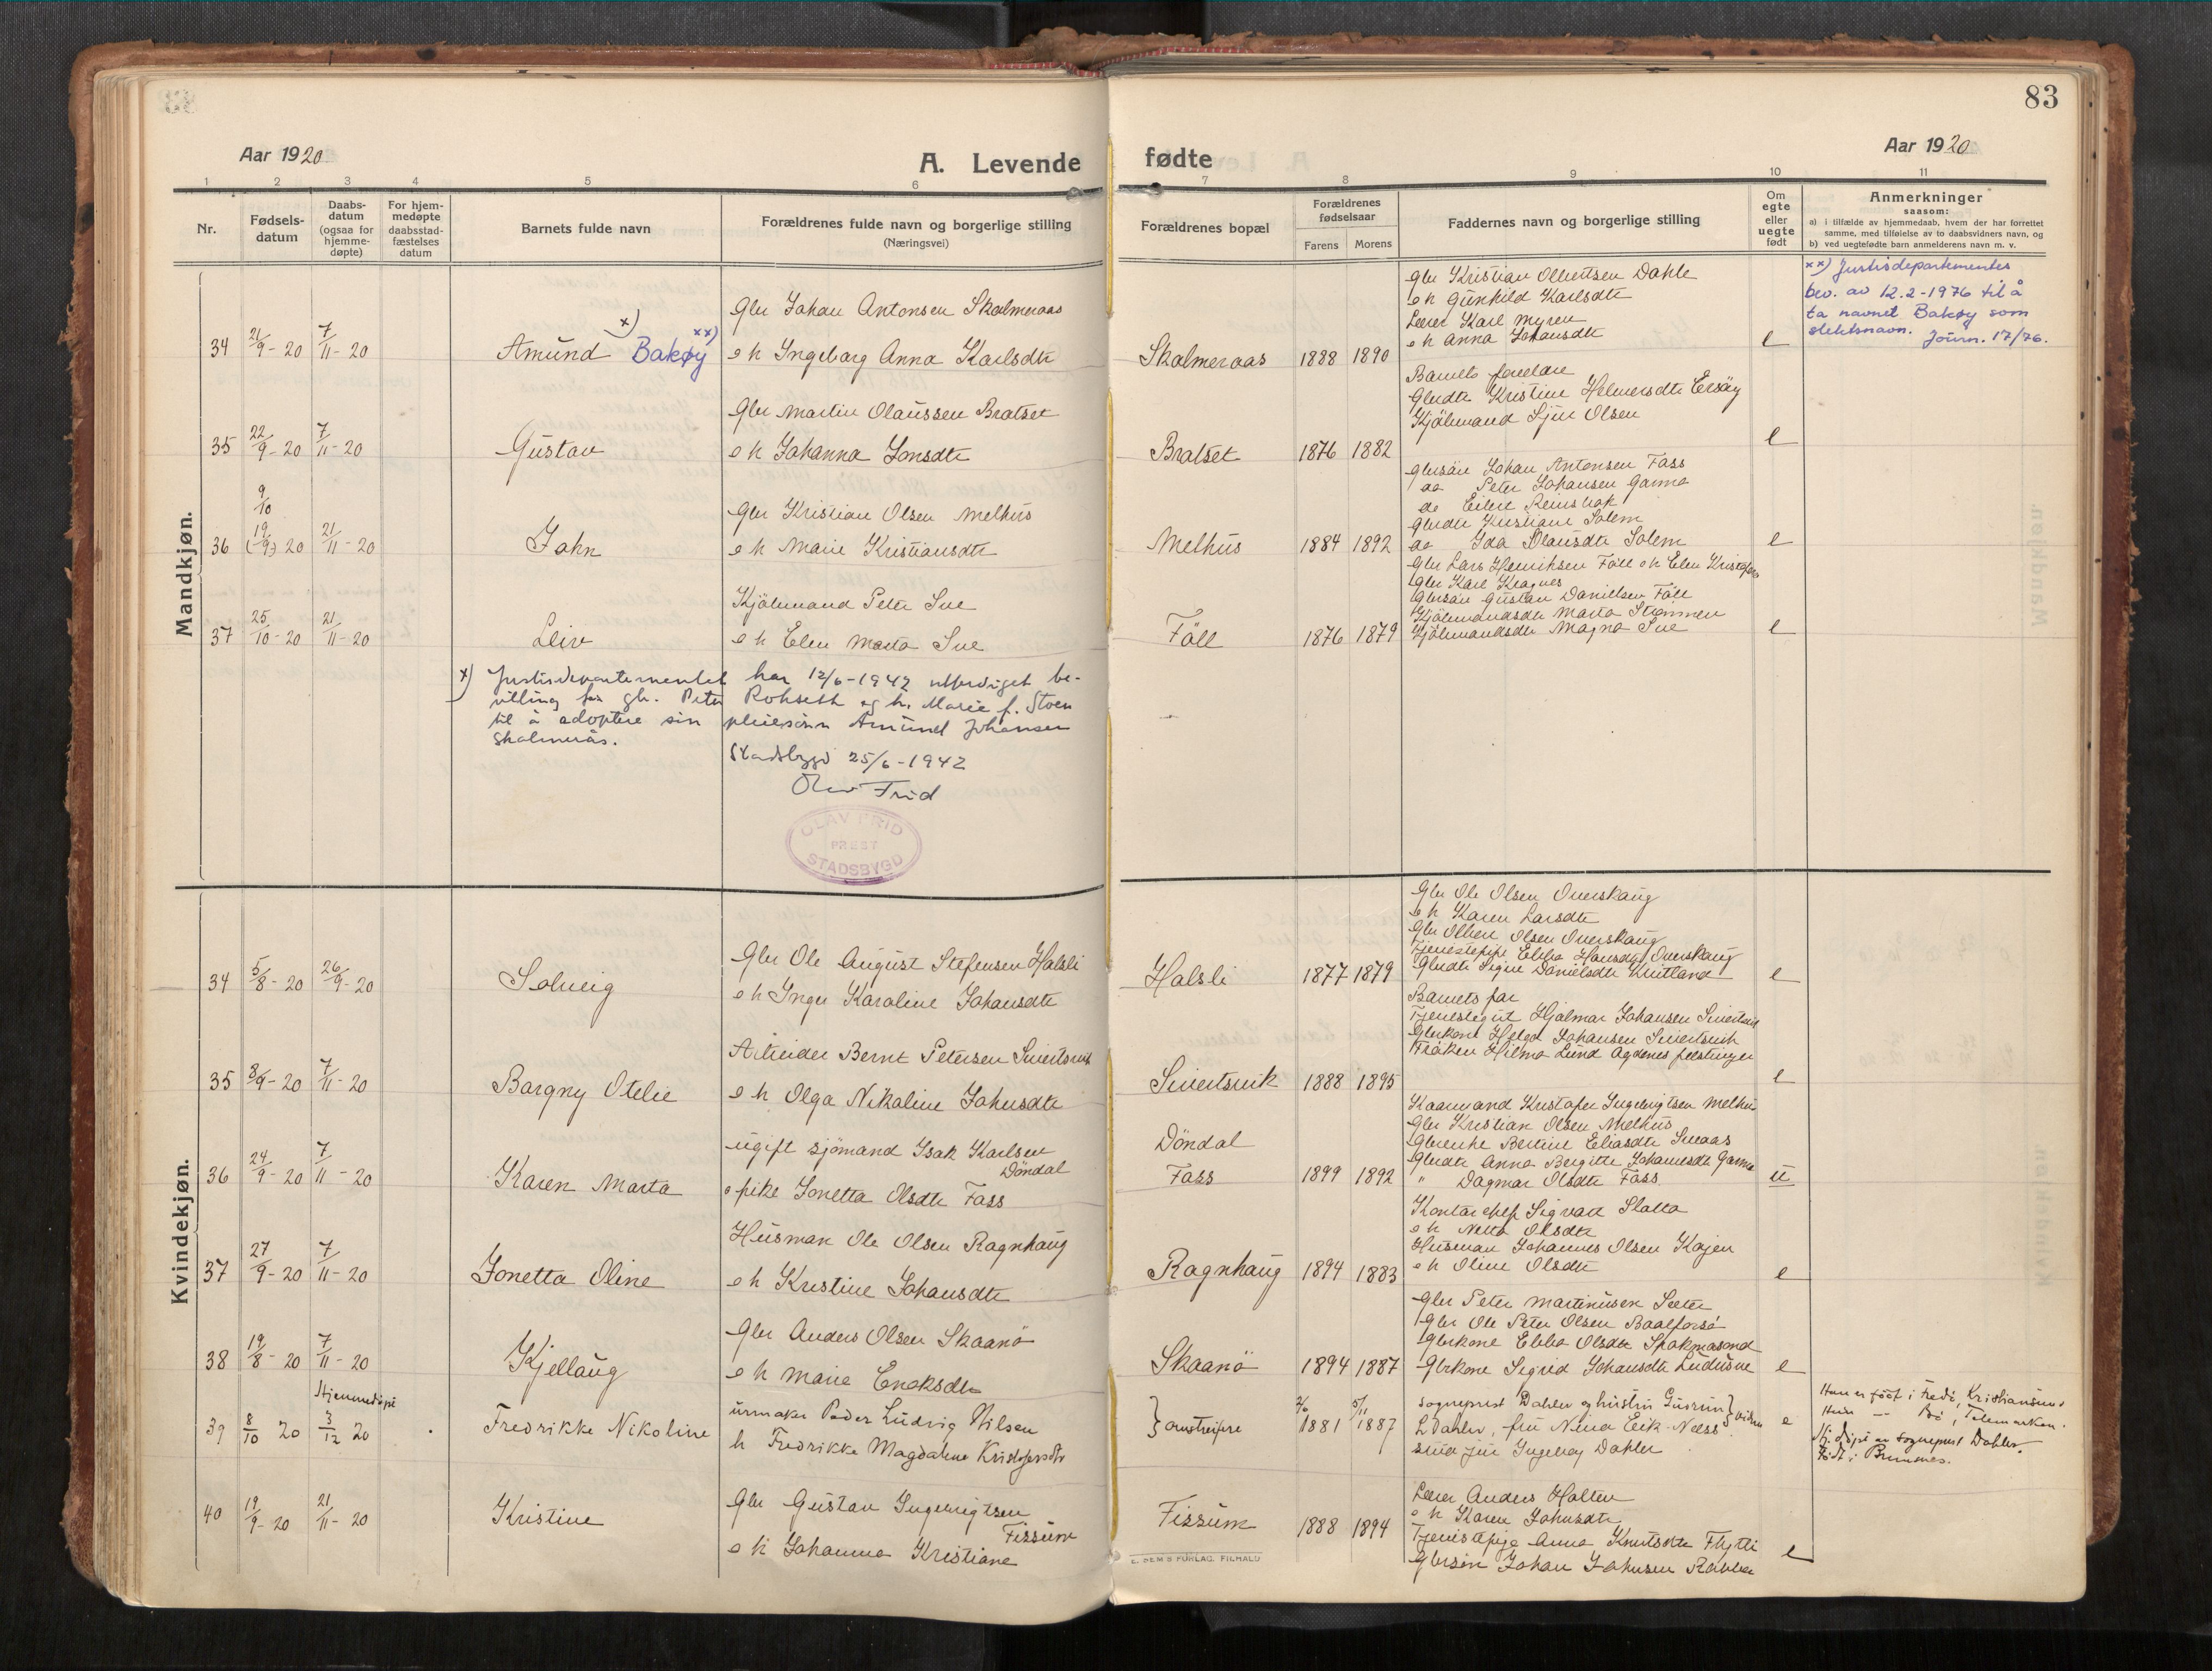 83
Aar 1920
A. Levende
fødte
Aar 1920
1 2 3 4 5 6 7 8 9 10 11
Nr.
Fødsels-
datum
Daabs-
datum
(ogsaa for
hjemme-
døpte)
For hjem-
medøpte
daabsstad-
fæstelses
datum
Barnets fulde navn
Forældrenes fulde navn og borgerlige stilling
(Næringsvei)
Forældrenes bopæl
Forældrenes
fødselsaar
Farens Morens
Faddernes navn og borgerlige stilling
Om
egte
eller
uegte
født
Anmerkninger
saasom:
a) i tilfælde av hjemmedaab, hvem der har forrettet
samme, med tilføielse av to daabsvidners navn, og
b) ved uegtefødte barn anmelderens navn m. v.
Mandkjøn.
34 21/9-20 7/11-20 Amund x) Bakøy xx)
Gbr Johan Antonsen Skalmeraas
o h Ingeborg Anna Karlsdtr
Skalmeraas 1888 1890
Gbr Kristian Olbertsen Dahle
o h Gunhild Karlsdtr
Lærer Karl Myren
o h Anna Johansdtr
e
xx) Justisdepartementes
bev. av 12.2-1976 til å
ta navnet Bakøy som
slektsnavn. Journ. 17/76.
35 22/9-20 7/11-20 Gustav
Gbr Martin Olaussen Bratset
o h Johanna Jonsdtr
Bratset 1876 1882
Barnets forældre
Gbrdtr Kristine Helmersdtr
Kjøbmand Olsen
e
36 9/10 (19/9) 20 21/11-20 John
Gbr Kristian Olsen Melhus
o h Marie Kristiansdtr
Melhus 1884 1892
Gbrsøn Johan Antonsen Fass
do Peter Johansen Garma
do Eilert Reinsbak
Gbrdtr Kristiane Solem
do Ida Olausdtr Solem
e
37 25/10-20 21/11-20 Leiv
Kjöbmand Peter Sve
o h Elen Marta Sve
Föll 1876 1879
Gbr Lars Henriksen Föll o h Elen Kristofers
Gbr Karl Kragnes
Gbrsøn Gustav Danielsen Föll
Kjöbmandsdtr Marta Strömmen
Kjöbmandsdtr Magna Sve
e
x) Justisdepartementet har 12/6-1942 utferdiget be-
villing for gb. Peter Rohseth og h. Marie f. Stoen
til å adoptere sin pleiesönn Amund Johansen
Skalmerås.
Stadsbygd 25/6-1942
Olav Frid
OLAV FRID
PREST
STADSBYGD
Kvindekjøn.
34 5/8-20 26/9-20 Solveig
Gbr Ole August Stefensen Halsli
o h Inger Karoline Johansdtr
Halsli 1877 1879
Gbr Ole Olsen Overskaug
o h Karen Larsdtr
Gbr Olbert Olsen Overskaug
Tjenestepike Ebba Hansdtr Overskaug
Gbrdtr Signe Danielsdtr
e
35 8/9-20 7/11-20 Borgny Otelie
Arbeider Bernt Petersen Sivertsvik
o h Olga Nikoline Johnsdtr
Sivertsvik 1888 1895
Barnets far
Tjenestegut Hjalmar Johansen Sivertsvik
Gbrkone Helga Johansen Sivertsvik
Fröken Hilma Lund Agdenes festninger
e
36 24/9-20 7/11-20 Karen Marta
ugift sjömand Isak Karlsen
Döndal
o pike Jonetta Olsdtr Fass
Döndal
Fass 1899 1892
Kaarmand Kristofer Ingebrigtsen Melhus
Gbr Kristian Olsen Melhus
Gbrenke Bertine Eliasdtr
Gbrdtr Anna Bergitte Johannesdtr Garma
" Dagmar Olsdtr Fass
u
37 27/9-20 7/11-20 Jonetta Oline
Husman Ole Olsen Ragnhaug
o h Kristine Johansdtr
Ragnhaug 1894 1883
Kontorchef Sigvart Slatta
o h Netta Olsdtr
Husman Johannes Olsen Kojen
o h Oline Olsdtr
e
38 19/8-20 7/11-20 Kjellaug
Gbr Anders Olsen Skaanö
o h Marie Eriksdtr
Skaanö 1894 1887
Gbr Peter Martinusen Sæter
Gbr Ole Peter Olsen
Gbrkone Ebba Olsdtr
Gbrkone Sigrid Johansdtr
e
Hjemmedöpt
39 8/10 20 3/12 20 Fredrikke Nikoline
urmaker Peder Ludvig Nilsen
h Fredrikke Magdalene Kristofersdtr
1881 5/11 1887
Sogneprest Dahler og hustru Gudrun
L Dahler, fru Nina Eik-Næss
fru Ingeborg Dahler
e
Han er födt i Fredö, Kristiansund
Hun — Bö, Telemarken.
Hj. döpt av sogneprest Dahler.
Födt i
40 19/9-20 21/11-20 Kristine
Gbr Gustav Ingebrigtsen
Fissum
o h Johanna Kristiane
Fissum 1888 1894
Lærer Anders Holten
o h Karen Johnsdtr
Tjenestepige Anna Knutsdtr Flytti
Gbrsøn Johan Johnsen
e
E. SEM'S FORLAG, FR.HALD